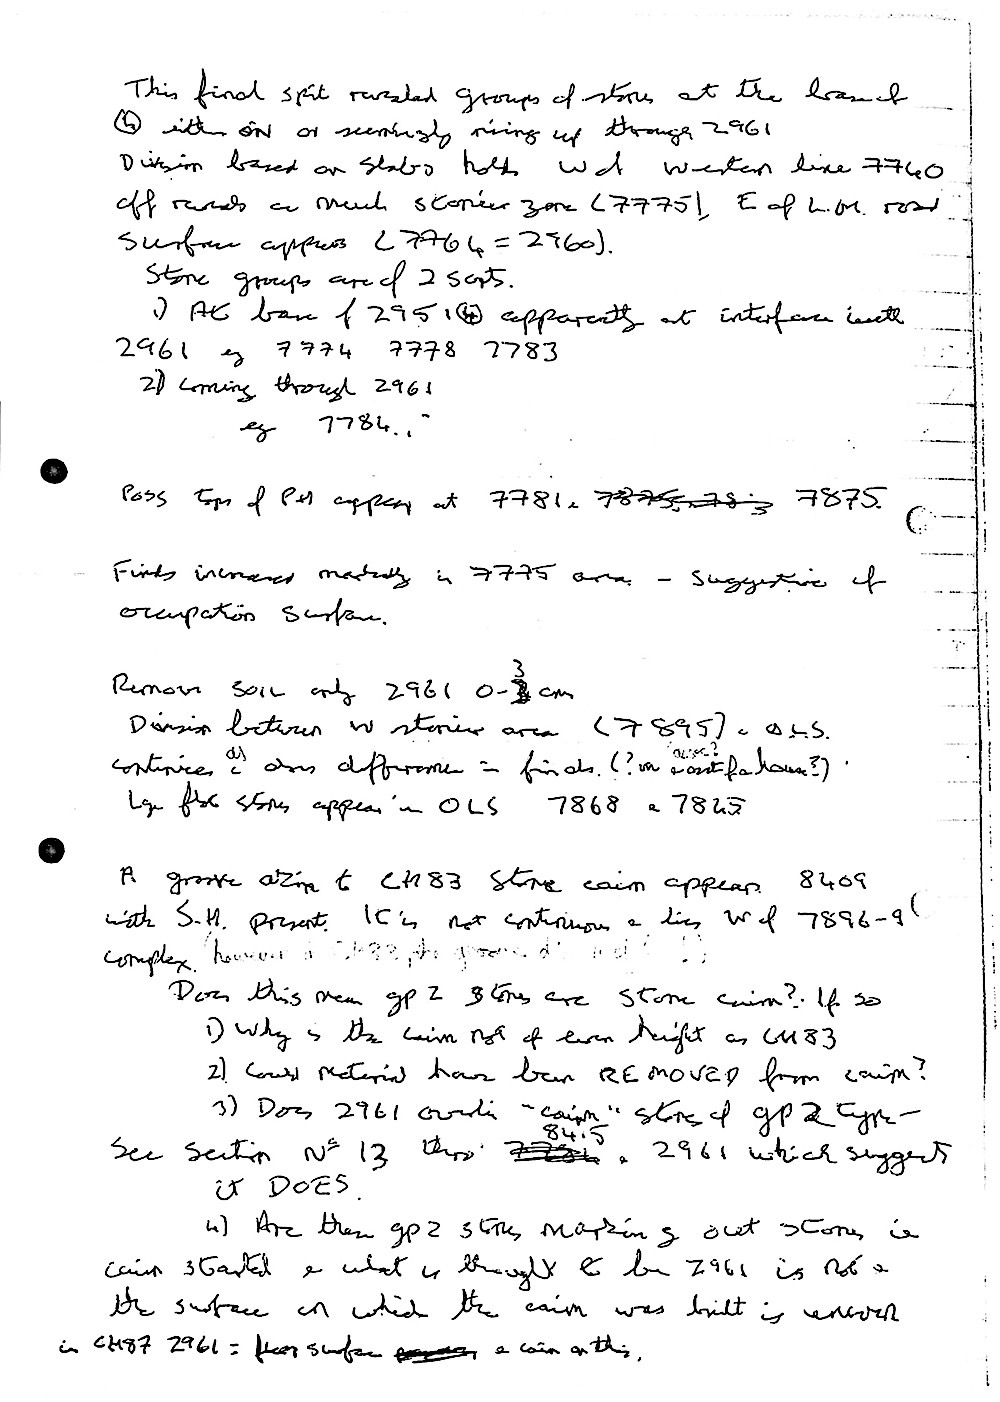 This final spit revealed groups of stones at the base of
(4) either ON or seemingly rising up through 2961
Division based on slabs holds W of western line 7740
off reveals a much stonier zone (7775), E of L.M. road
surface appears (7764 = 2960).
Stone groups are of 2 sorts.
1) At base of 2951 (4) apparently at interface with
2961 eg 7774 7778 7783
2) Coming through 2961
eg 7784..
Poss tops of PH appear at 7781 & 7875.
Finds increased markedly in 7775 area - suggestive of
occupation surface.
Remove soil only 2961 0-3 cm
Division between W stonier area (7895) & OLS.
continues as does difference in finds. (?
Lge flat stones appear in OLS 7868 & 7825
A groove akin to CH83 stone cairn appears 8409
with S.H. present. It is not continuous & lies W of 7896-9
complex.
Does this mean gp 2 stones are stone cairn? If so
1) Why is the cairn not of even height as CH83
2) Could material have been REMOVED from cairn?
3) Does 2961 overlie "cairn" stones of gp 2 type -
See section No 13 thro' 8415 & 2961 which suggests
it DOES.
4) Are then gp 2 stones marking out stones ie
cairn started & what is thought to be 2961 is not &
the surface on which the cairn was built is uneven
in CH87 2961 = floor surface & cairn on this.